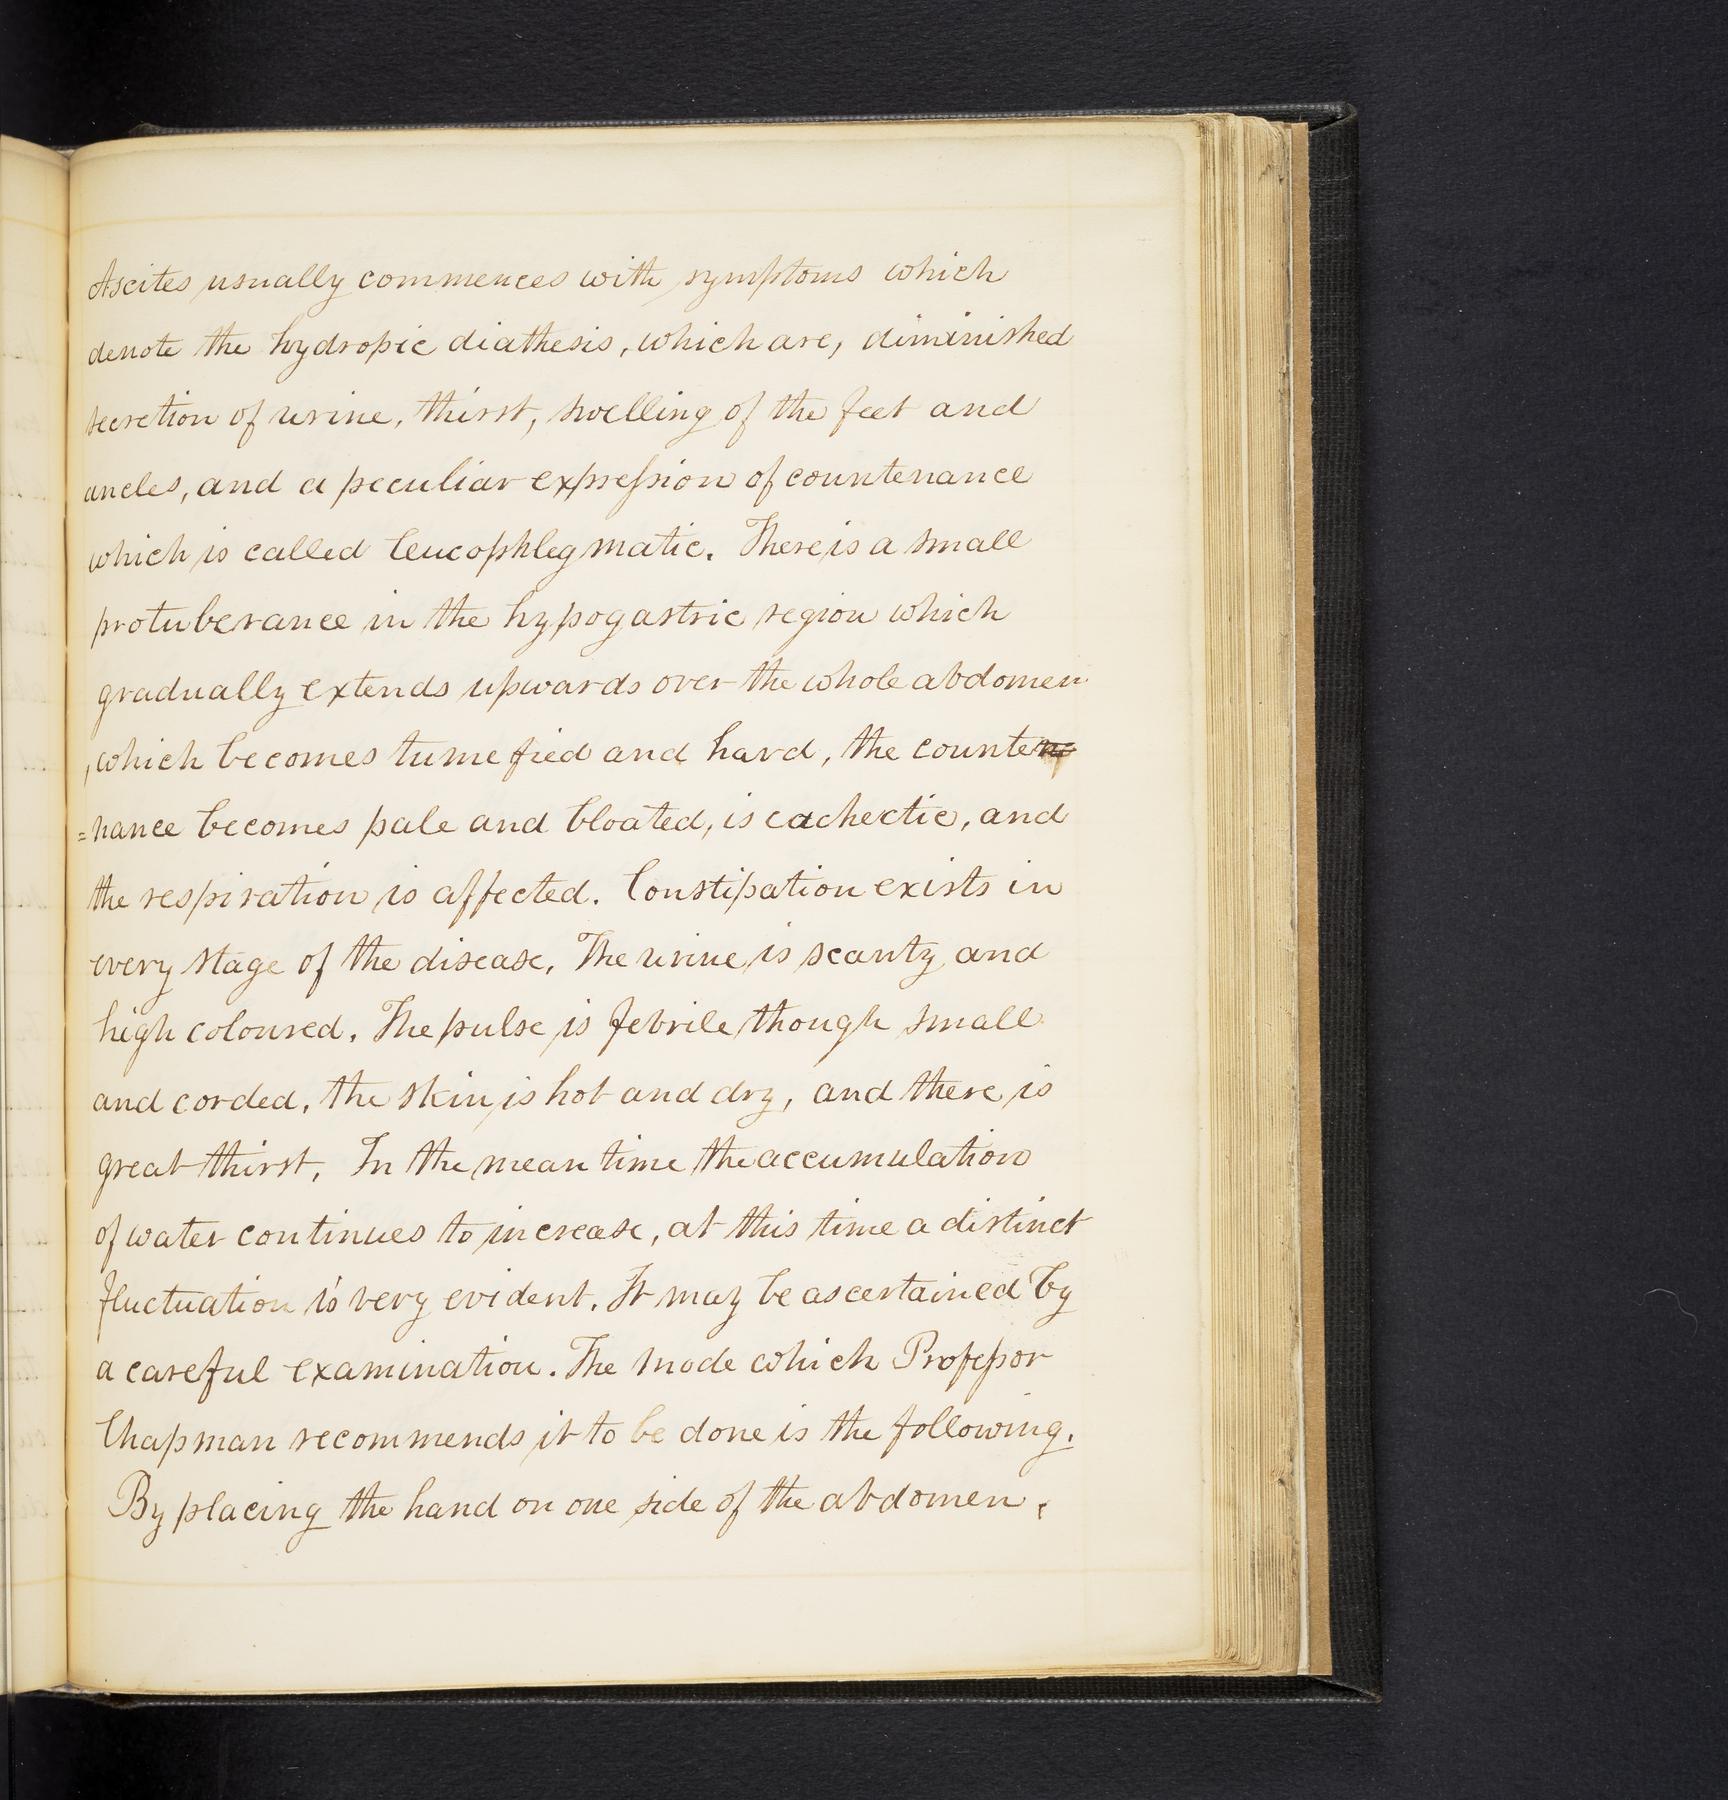 Ascites usually commences with symptoms which
denote the hydropic diathesis, which are, diminished
secretion of urine, thirst, swelling of the feet and
ancles, and a peculiar expression of countenance
which is called leucophlegmatic. There is a small
protuberance in the hypogastric region which
gradually extends upwards over the whole abdomen
, which becomes tumefied and hard, the counte
=nance becomes pale and bloated, is cachectic, and
the respiration is affected. Constipation exists in
every stage of the disease. The urine is scanty and
high coloured. The pulse is febrile though small
and corded, the skin is hot and dry, and there is
great thirst. In the mean time the accumulation
of water continues to increase, at this time a distinct
fluctuation is very evident. It may be ascertained by
a careful examination. The mode which Professor
Chapman recommends it to be done is the following.
By placing the hand on one side of the abdomen,